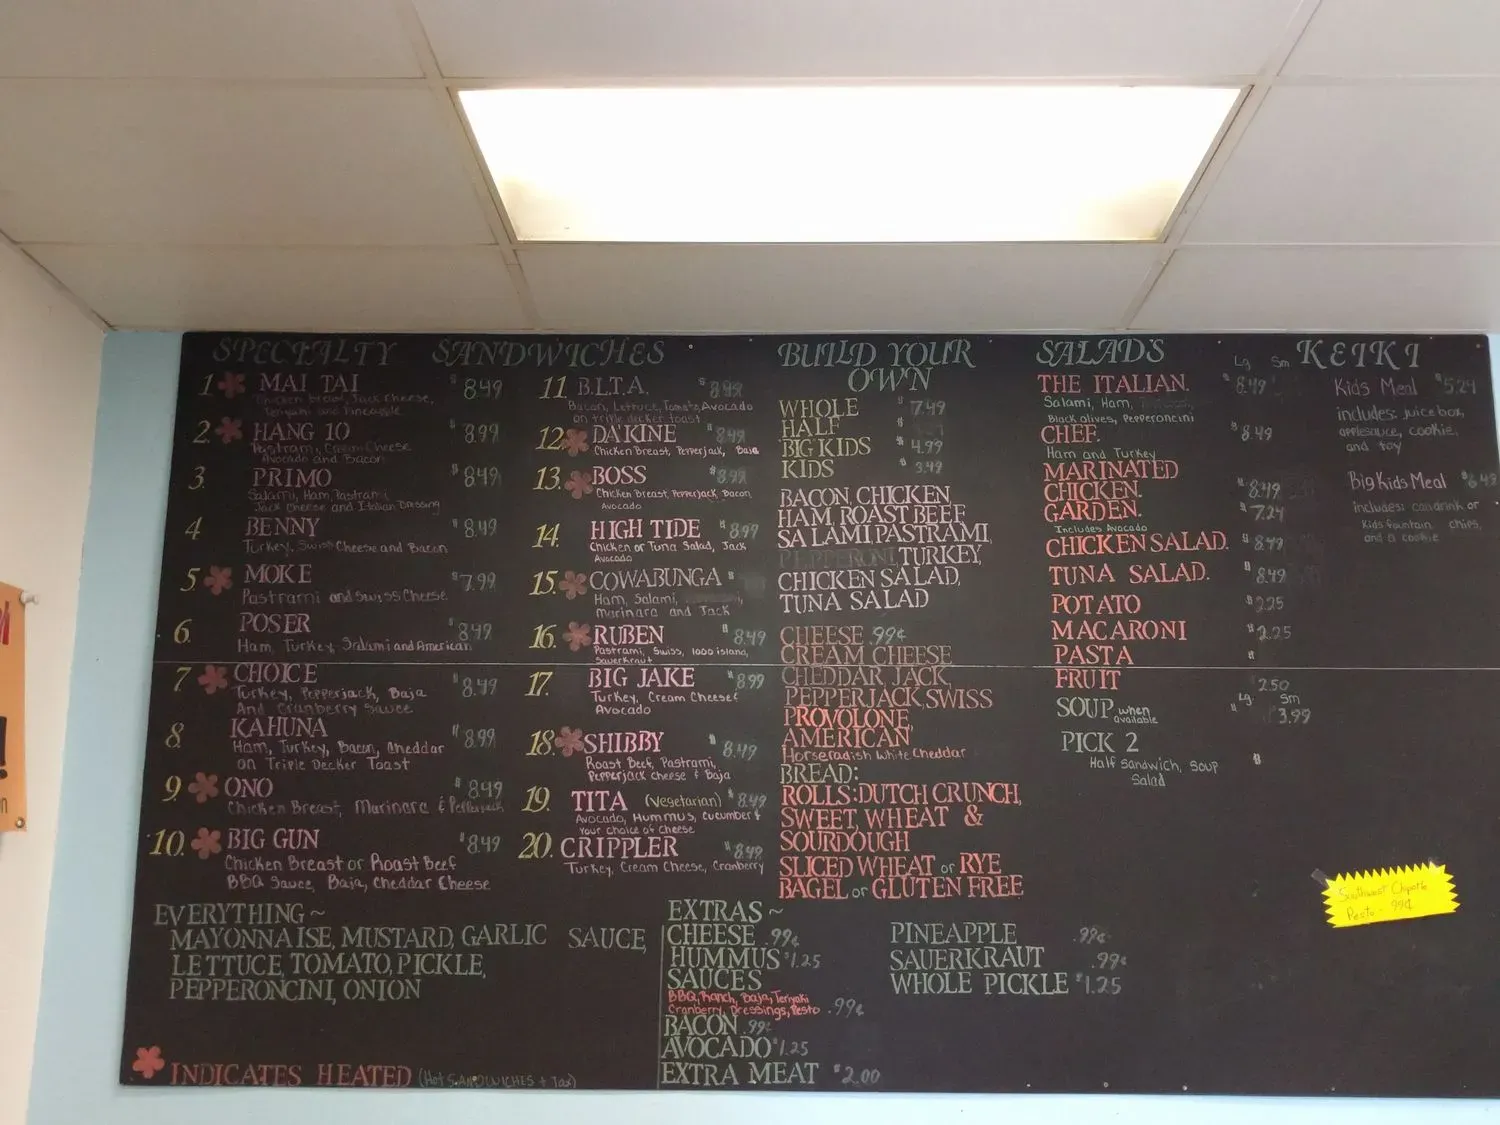 SPECIALTY SANDWICHES
1 MAI TAI $8.49
Chicken Breast, Jack Cheese,
Teriyaki and Pineapple
2. HANG 10 $8.99
Pastrami, Cream Cheese
Avocado and Bacon
3. PRIMO $8.49
Salami, Ham, Pastrami,
Jack Cheese and Italian Dressing
4 BENNY $8.49
Turkey, Swiss Cheese and Bacon
5. MOKE $7.99
Pastrami and Swiss Cheese
6. POSER $8.49
Ham, Turkey, Salami and American
7 CHOICE $8.49
Turkey, Pepperjack, Baja
And Cranberry Sauce
8. KAHUNA $8.99
Ham, Turkey, Bacon, Cheddar
on Triple Decker Toast
9. ONO $8.49
Chicken Breast, Marinara & Pepperjack
10. BIG GUN $8.49
Chicken Breast or Roast Beef
BBQ Sauce, Baja, Cheddar Cheese
11 B.L.T.A. $8.99
Bacon, Lettuce, Tomato, Avocado
on triple decker toast
12. DA KINE $8.49
Chicken Breast, Pepperjack, Baja
13. BOSS $8.99
Chicken Breast, Pepperjack, Bacon
Avocado
14. HIGH TIDE $8.99
Chicken or Tuna Salad, Jack
Avocado
15. COWABUNGA $
Ham, Salami,
Marinara and Jack
16. RUBEN $8.49
Pastrami, Swiss, 1000 island,
Sauerkraut
17. BIG JAKE $8.99
Turkey, Cream Cheese &
Avocado
18. SHIBBY $8.49
Roast Beef, Pastrami,
Pepperjack Cheese & Baja
19. TITA (Vegetarian) $8.49
Avocado, Hummus, Cucumber &
Your choice of Cheese
20. CRIPPLER $8.49
Turkey, Cream Cheese, Cranberry
BUILD YOUR
OWN
WHOLE $7.49
HALF $
BIG KIDS $4.99
KIDS $3.49
BACON, CHICKEN,
HAM, ROAST BEEF,
SALAMI PASTRAMI,
PEPPERONI, TURKEY,
CHICKEN SALAD,
TUNA SALAD
CHEESE .99¢
CREAM CHEESE
CHEDDAR, JACK,
PEPPERJACK, SWISS
PROVOLONE,
AMERICAN
Horseradish White Cheddar
BREAD:
ROLLS: DUTCH CRUNCH,
SWEET, WHEAT &
SOURDOUGH
SLICED WHEAT or RYE
BAGEL or GLUTEN FREE
SALADS Lg Sm
THE ITALIAN. $8.49
Salami, Ham,
Black olives, Pepperoncini
CHEF. $8.49
Ham and Turkey
MARINATED
CHICKEN. $8.49
GARDEN. $7.24
Includes Avocado
CHICKEN SALAD. $8.49
TUNA SALAD. $8.49
POTATO $2.25
MACARONI $2.25
PASTA $
FRUIT 2.50
Lg Sm
SOUP when available $ $3.99
PICK 2 $
Half Sandwich, Soup
Salad
KEIKI
Kids Meal $5.24
includes: juice box,
applesauce, cookie,
and toy
Big Kids Meal $6.43
includes: can drink or
Kids fountain chips,
and a cookie
Southwest Chipotle
Pesto - 99¢
EVERYTHING ~
MAYONNAISE, MUSTARD, GARLIC SAUCE,
LETTUCE, TOMATO, PICKLE,
PEPPERONCINI, ONION
INDICATES HEATED (Hot SANDWICHES + Tax)
EXTRAS ~
CHEESE .99¢
HUMMUS $1.25
SAUCES
BBQ, Ranch, Baja, Teriyaki
Cranberry, Dressings, Pesto .99¢
BACON .99¢
AVOCADO $1.25
EXTRA MEAT $2.00
PINEAPPLE .99¢
SAUERKRAUT .99¢
WHOLE PICKLE $1.25